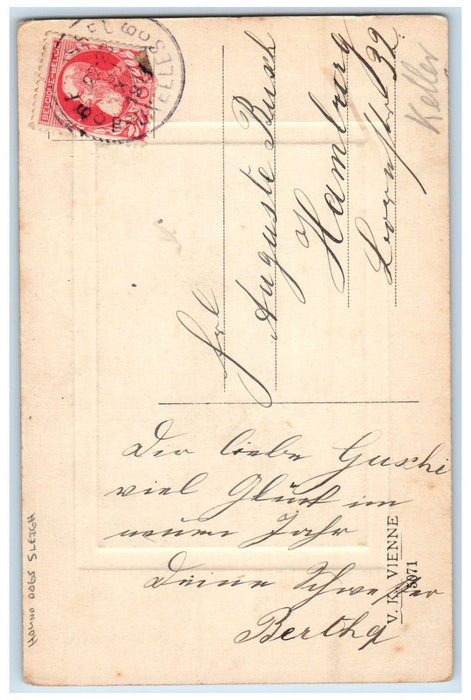 BELGIQUE-BELGIË
BRUXELLES
Frl
Auguste Busch
Hamburg
32
Keller
Dir liebe Guschi
viel Glück im
neuen Jahr
Deine Schwester
Bertha
V. K. VIENNE
5071
HOUND DOGS SLEIGH